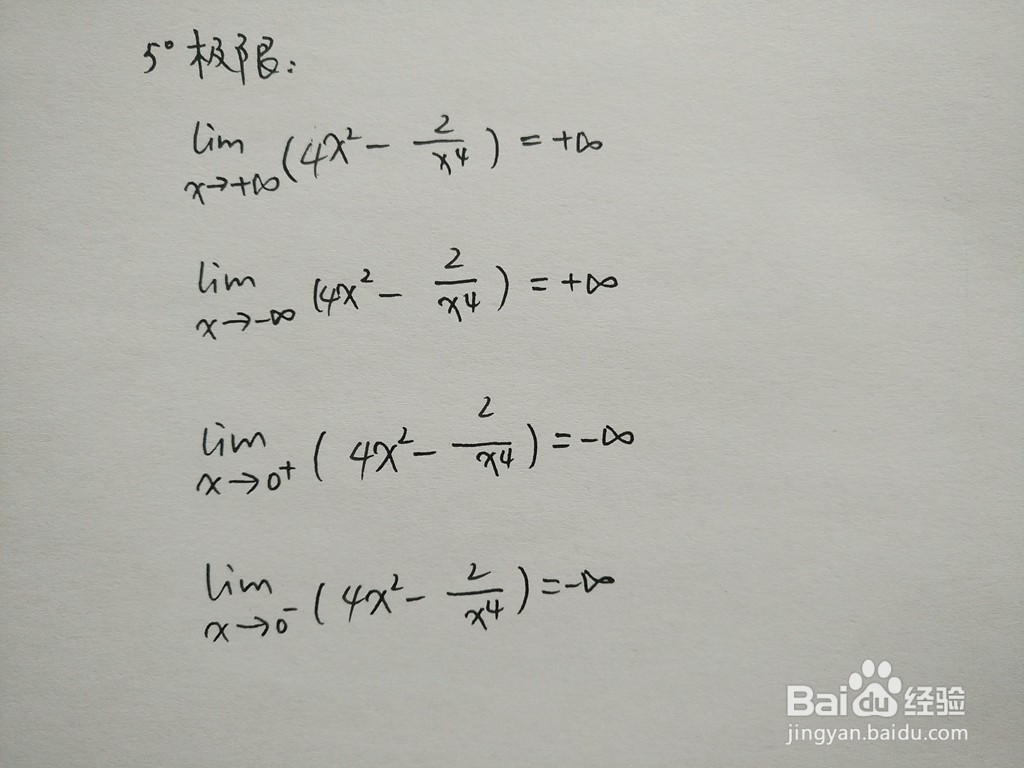 5° 极限:
lim x→+∞ (4x² - 2/x⁴) = +∞
lim x→-∞ (4x² - 2/x⁴) = +∞
lim x→0⁺ (4x² - 2/x⁴) = -∞
lim x→0⁻ (4x² - 2/x⁴) = -∞
Bai 经验
jingyan.baidu.com